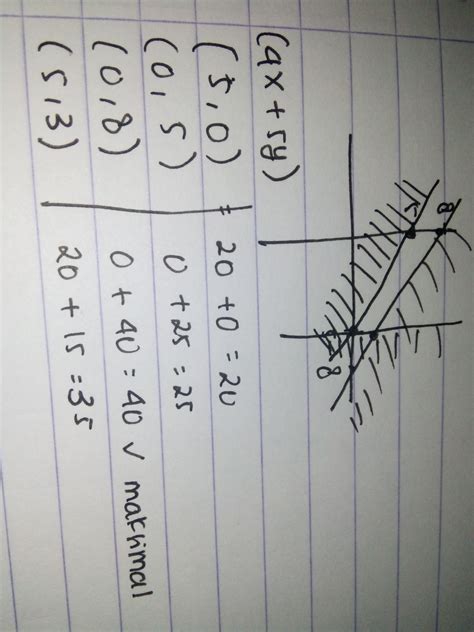 8
5
8
(4x + 5y)
(5,0) = 20 + 0 = 20
(0, 5) 0 + 25 = 25
(0,8) 0 + 40 = 40 √ maksimal
(5,3) 20 + 15 = 35